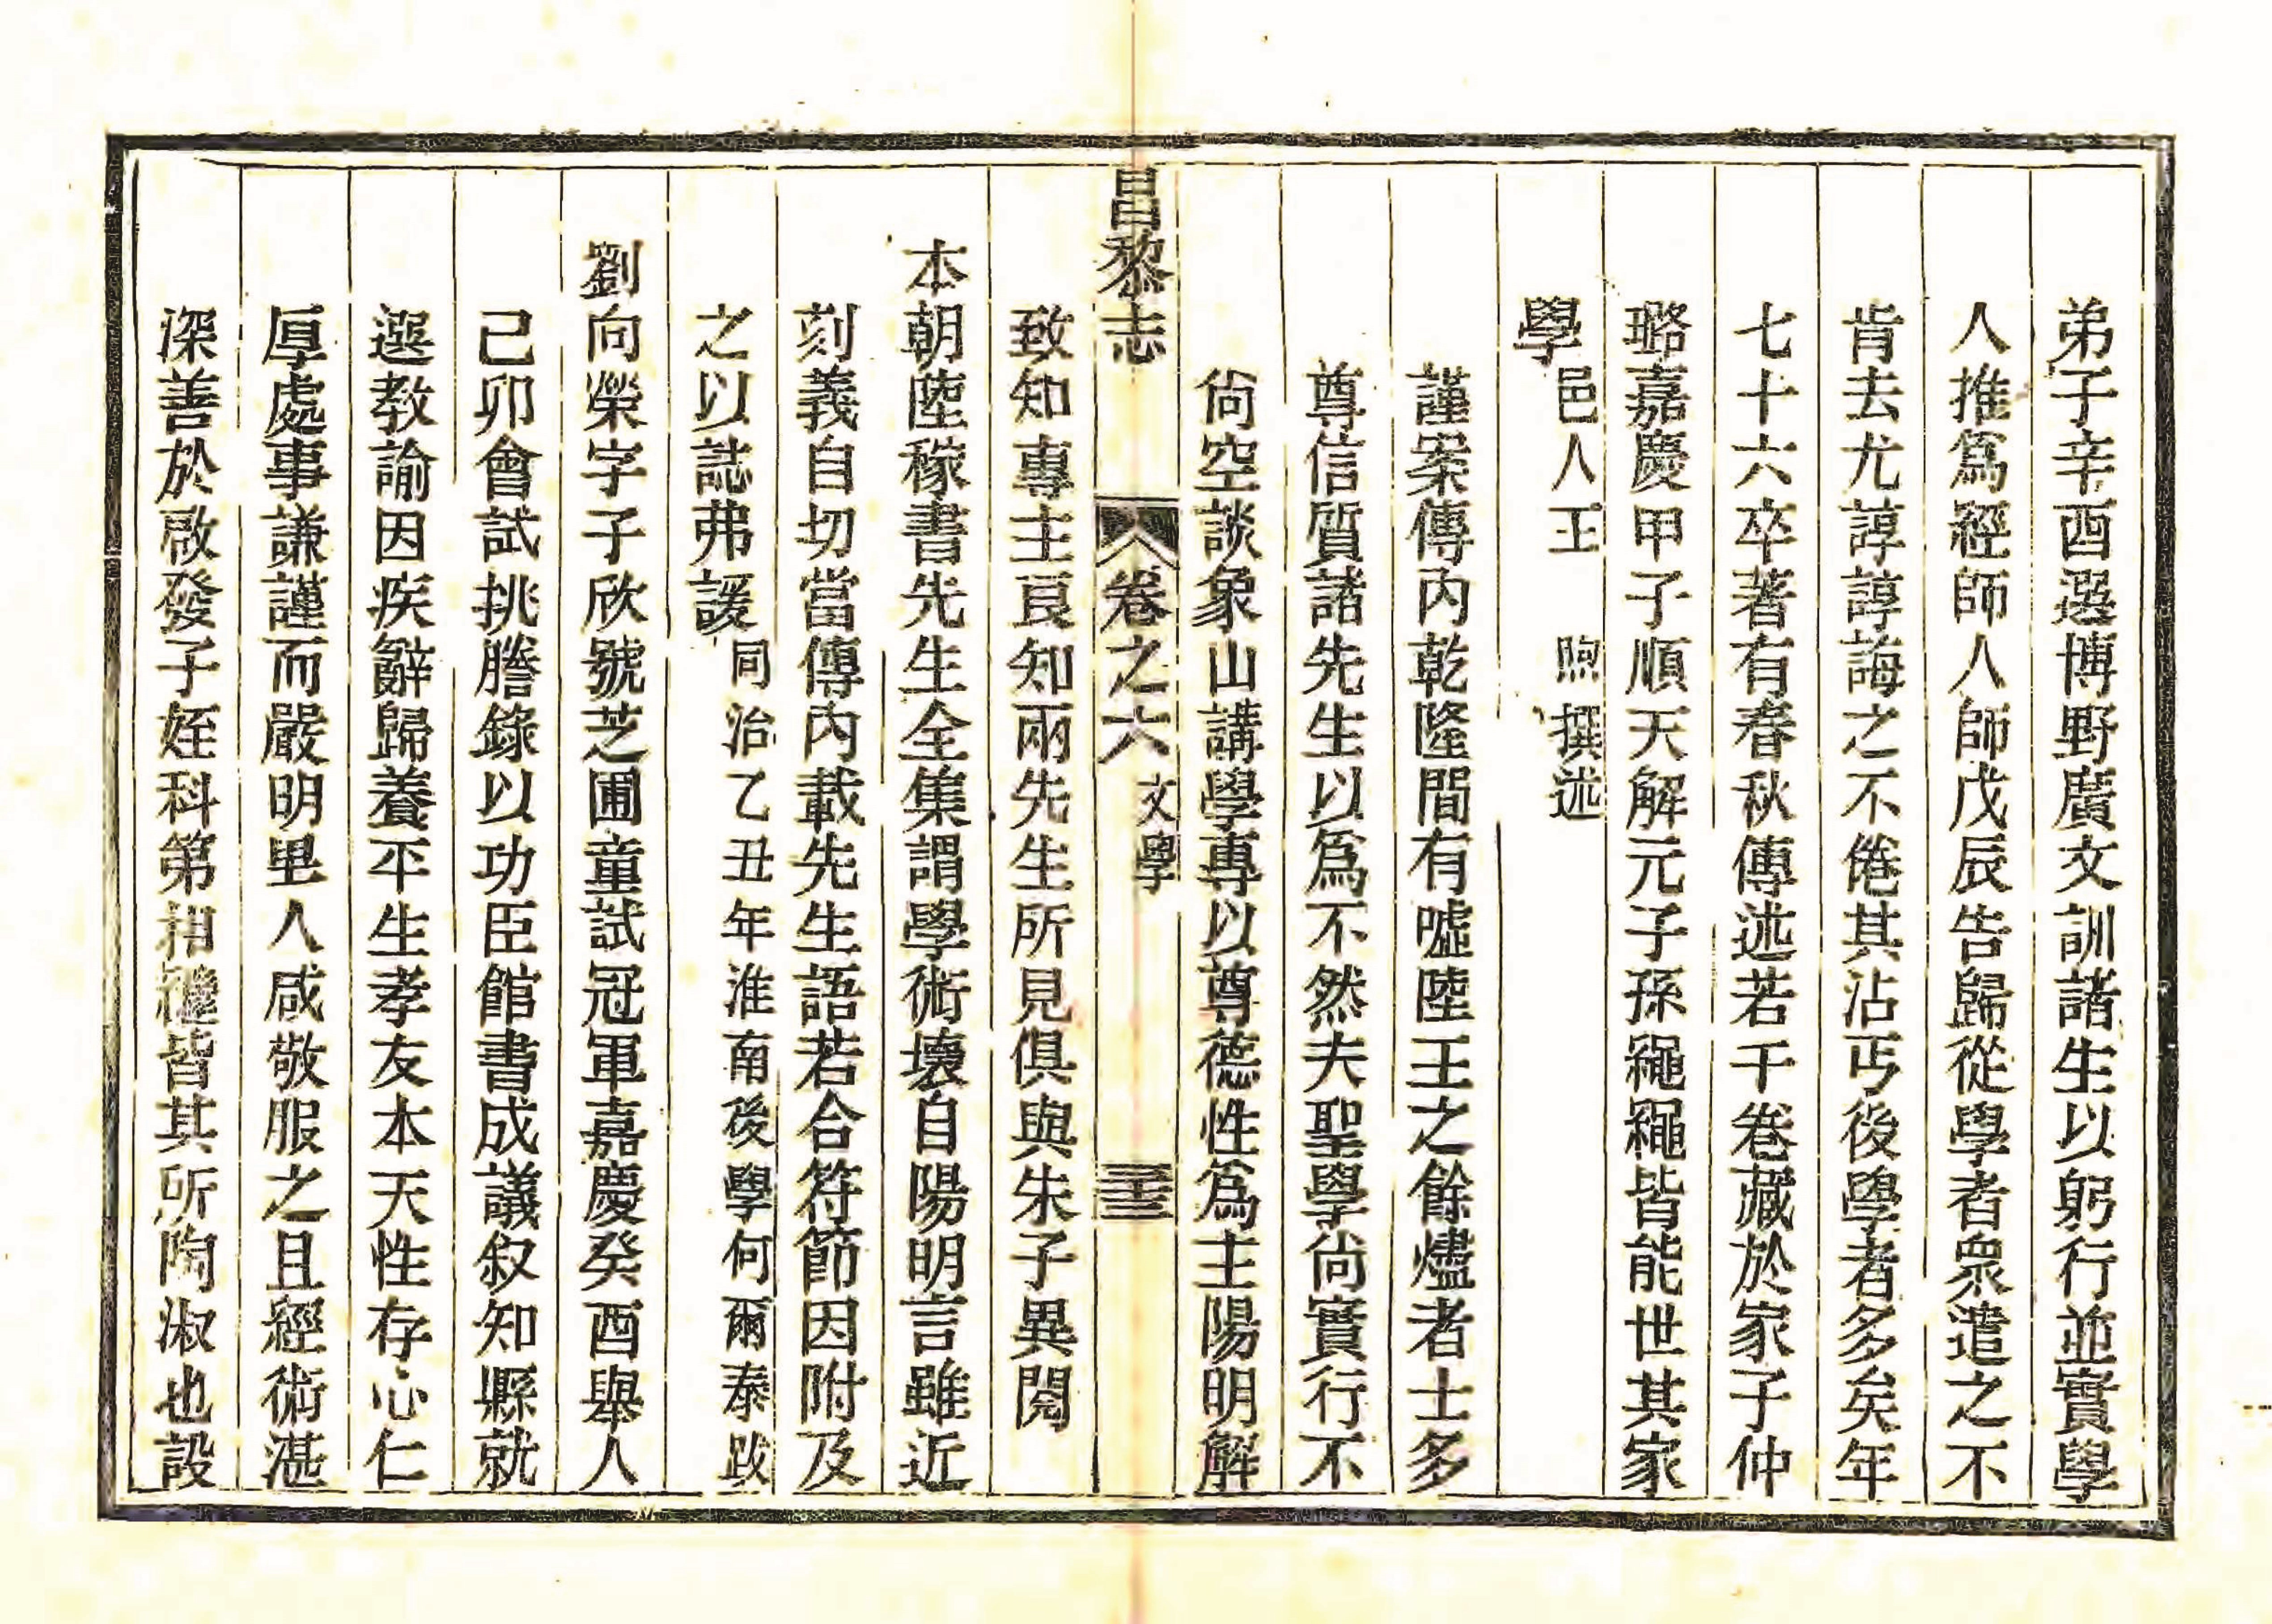 弟子辛酉選博野廣文訓諸生以躬行並實學
人推爲經師人師戊辰告歸從學者眾遣之不
肯去尤諄諄誨之不倦其沾丐後學者多矣年
七十六卒著有春秋傳述若干卷藏於家子仲
璐嘉慶甲子順天解元子孫繩繩皆能世其家
學邑人王煦撰述
謹案傳內乾隆間有噓陸王之餘燼者士多
尊信質諸先生以爲不然夫聖學尚實行不
尙空談象山講學專以尊德性爲主陽明解
昌黎志 卷之六 文學 三十三
致知專主良知兩先生所見俱與朱子異閱
本朝陸稼書先生全集謂學術壞自陽明言雖近
刻義自切當傳內載先生語若合符節因附及
之以誌弗諼同治乙丑年淮南後學何爾泰跋
劉向榮字子欣號芝圃童試冠軍嘉慶癸酉舉人
己卯會試挑謄錄以功臣館書成議叙知縣就
選教諭因疾辭歸養平生孝友本天性存心仁
厚處事謙謹而嚴明里人咸敬服之且經術湛
深善於啟發子姪科第相繼皆其所陶淑也設